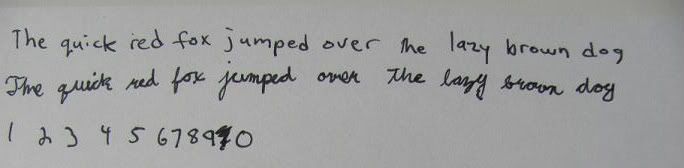 The quick red fox jumped over the lazy brown dog
The quick red fox jumped over the lazy brown dog
1 2 3 4 5 6 7 8 9 10